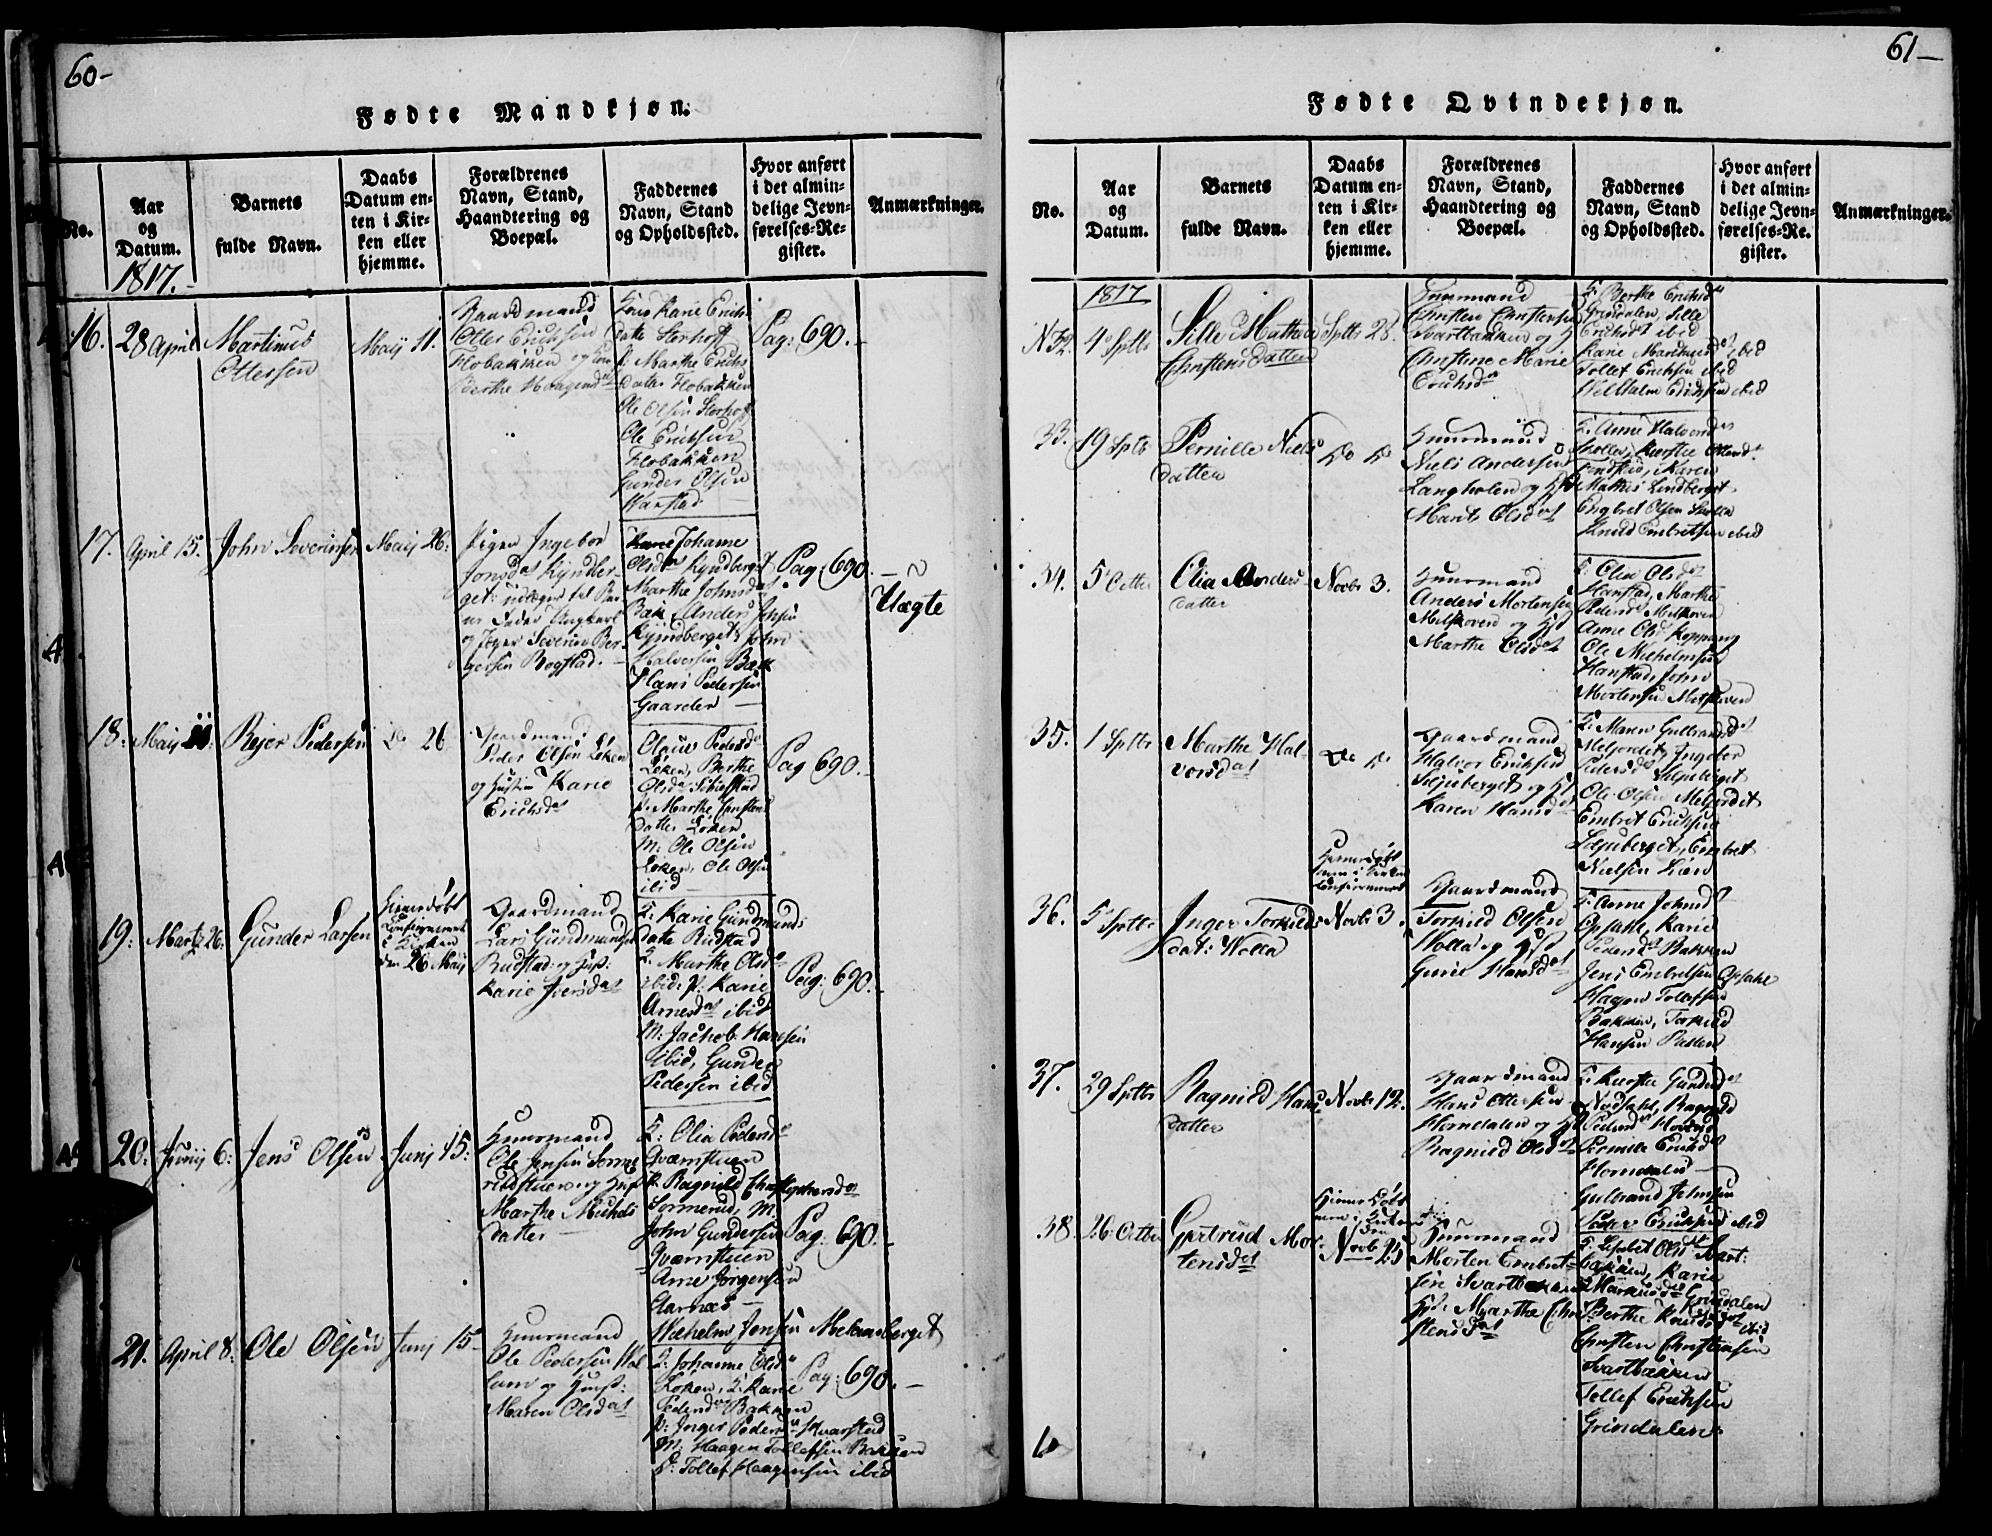 60-
Fødte Mandkjøn.
No.
Aar
og
Datum.
1817.-
Barnets
fulde Navn.
Daabs
Datum en-
ten i Kir-
ken eller
hjemme.
Forældrenes
Navn, Stand,
Haandtering og
Boepæl.
Faddernes
Navn, Stand
og Opholdssted.
Hvor anført
i det almin-
delige Jevn-
førelses-Re-
gister.
Anmærkninger.
16.
28 April
Martinus
Ottersen
Maij 11.
Gaardmand
Otter Erichsen
Flobakken og
Berthe Haagensdat
Marthe Erichs
datter Flobakken
Ole Olsen Storhoff
Ole Erichsen
Flobakken
Gunder Olsen
Pag: 690.
17.
April 15.
John Seversen
Maij 26.
Pigen Ingebor
Jonsdat Kyndber-
get: udlægger til Bar-
og Jeger Severin Ber-
gersen Bogstad.
Johanne
Olsdat Kyndberget
Marthe Johnsdat
Bæk, Anders Jensen
Kyndberget, John
Halvorsen Bæk
Hans Pedersen
Gaarder
Pag: 690.
Uægte
18.
Maij
Rejer Pedersen
Do 26
Gaardmand
Peder Olsen Løken
og Hustru Karie
Erichsdat
Løken, Berthe
Marthe
datter Løken
M: Ole Olsen
Løken, Ole Olsen
ibid
Pag 690.
19.
Marty 26.
Gunder Larsen
Hiemedøbt
Confirmeret
i Kirken
den 26 Maij
Gaardmand
Lars Gundmundsen
Rudstad og Hust:
Karie Iversdat
Karie Gundmunds
datr Rudstad
Marthe Olsdr
ibid, P: Karie
Arnesdat ibid
M: Jachob Hansen
ibid, Gunder
Pedersen ibid
Pag: 690.
20.
Junij 6:
Jens Olsen
Junij 15:
Huusmand
Ole Jensen Sorme
rudstuen og Hust
Marthe Michels
datter
Olia Pedersdr
Qværnstuen
P. Ragnild Christophersdat
Sormerud, M.
John Gundersen
Qværnstuen
Arne Jørgensen
Aarnæs
Wilhelm Jensen Melumsberget
Pag: 690.
21.
April 8.
Ole Olsen
Junij 15
Huusmand
Ole Pedersen
og Hust:
Maren Olsdat
Johanne Olsdr
Løken, Karie
Pedersdat Bakken
P: Inger Pedersdr Kvarstad
M: Haagen Tollefsen Bakken
Tollef Haagensen ibid
Pag: 690.
61-
Fødte Qvindekjøn.
No.
Aar
og
Datum.
Barnets
fulde Navn.
Daabs
Datum en-
ten i Kir-
ken eller
hjemme.
Forældrenes
Navn, Stand,
Haandtering og
Boepæl.
Faddernes
Navn, Stand
og Opholdssted.
Hvor anført
i det almin-
delige Jevn-
førelses-Re-
gister.
Anmærkninger.
1817
N 32.
4 Sptbr
Sille Mathea
Christensdatter
Sptbr 28.
Huusmand
Christen Christensen
Svartbakken og H
Christene Marie
Erichsdr
F: Berthe Erichsdr
Grindalen, Sille
Erichsdat ibid
Karie Marthinsdr ibid
Tollef Erichsen ibid
Wilhelm Erichsen ibid
33.
19 Sptb
Pernille Niels
datter
Do Do
Huusmand
Niels Andersen
Langholen og H
Marit Olsdat
F: Anne Halvorsdat
Kierstie
Karen
Mathis Lindberget
Engbret Olsen
Knud Embretsen ibid
34.
5 Octbr
Olia Anders
datter
Novbr 3.
Huusmand
Anders Mortensen
Melskoven og H
Marthe Olsdat
F: Olia Olsdat
Hanstad, Marthe
Pedersdr Melskoven
Anne Olsdr Koppang
Ole Wilhelmsen
Hanstad, John
Mortensen Melskoven
35.
1 Sptbr
Marthe Hal-
vorsdat
Do Do
Gaardmand
Halvor Erichsen
Seljuberget og H
Karen Hansdat
F: Maren Gulbransdat
Meljordet, Ingebor
Pedersdr Seljuberget
Ole Olsen Meljordet
Embret Erichsen
Seljuberget, Embret
Nielsen Kiær
36.
5 Sptbr
Inger Torkilds
dat: Wolla
Hiemedøbt
Confirmeret
Novbr 3.
Gaardmand
Torkild Olsen
Wolla og Hst
Gurie Hansdat
F: Anne Johnsdr
Opsahl, Karie
Pedersdr Bakken
Jens Embretsen Opsahl
Hagen Tollefsen
Bakken, Torkild
Hansen
37.
29 Sptbr
Ragnild Hans
datter
Novbr 12.
Gaardmand
Hans Ottersen
Horndalen og H
Ragnild Olsdat
F: Kierstie Gundersdat
Ragnild
Pedersdat
Pernille Erichsdat
Horndalen
Gulbrand Johnsen
Peder Erichsen ibid
38.
26 Octbr
Gertrud Mor-
tensdat
Hiemedøbt
den
Novbr 25
Huusmand
Morten Embret-
sen Svartbakken
Hst. Marthe Chri-
stensdat
F: Lisabet Olsdat Svart:
bakken, Karie
Grindalen
Berthe Knudsdat ibid
Christen Christensen
Svartbakken
Tollef Erichsen
Grindalen